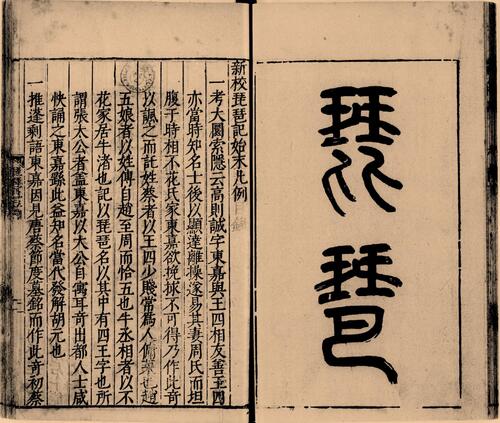 琵琶
新校琵琶記始末凡例
一考大圜索隱云高則誠字東嘉與王四相友善王四
亦當時知名士後以顯達離操遂易其妻周氏而坦
腹于時相不花氏家東嘉欲挽捄不可得乃作此奇
以諷之而託姓蔡者以王四少賤嘗為人傭菜也趙
五娘者以姓傳自趙至周而恰五也牛丞相者以不
花家居牛渚也記以琵琶名以其中有四王字也所
謂張大公者蓋東嘉以大公自寓耳奇出都人士咸
快誦之東嘉繇此益知名當代發解胡元也
一推蓬剩語東嘉因見唐蔡節度墓銘而作此奇初蔡